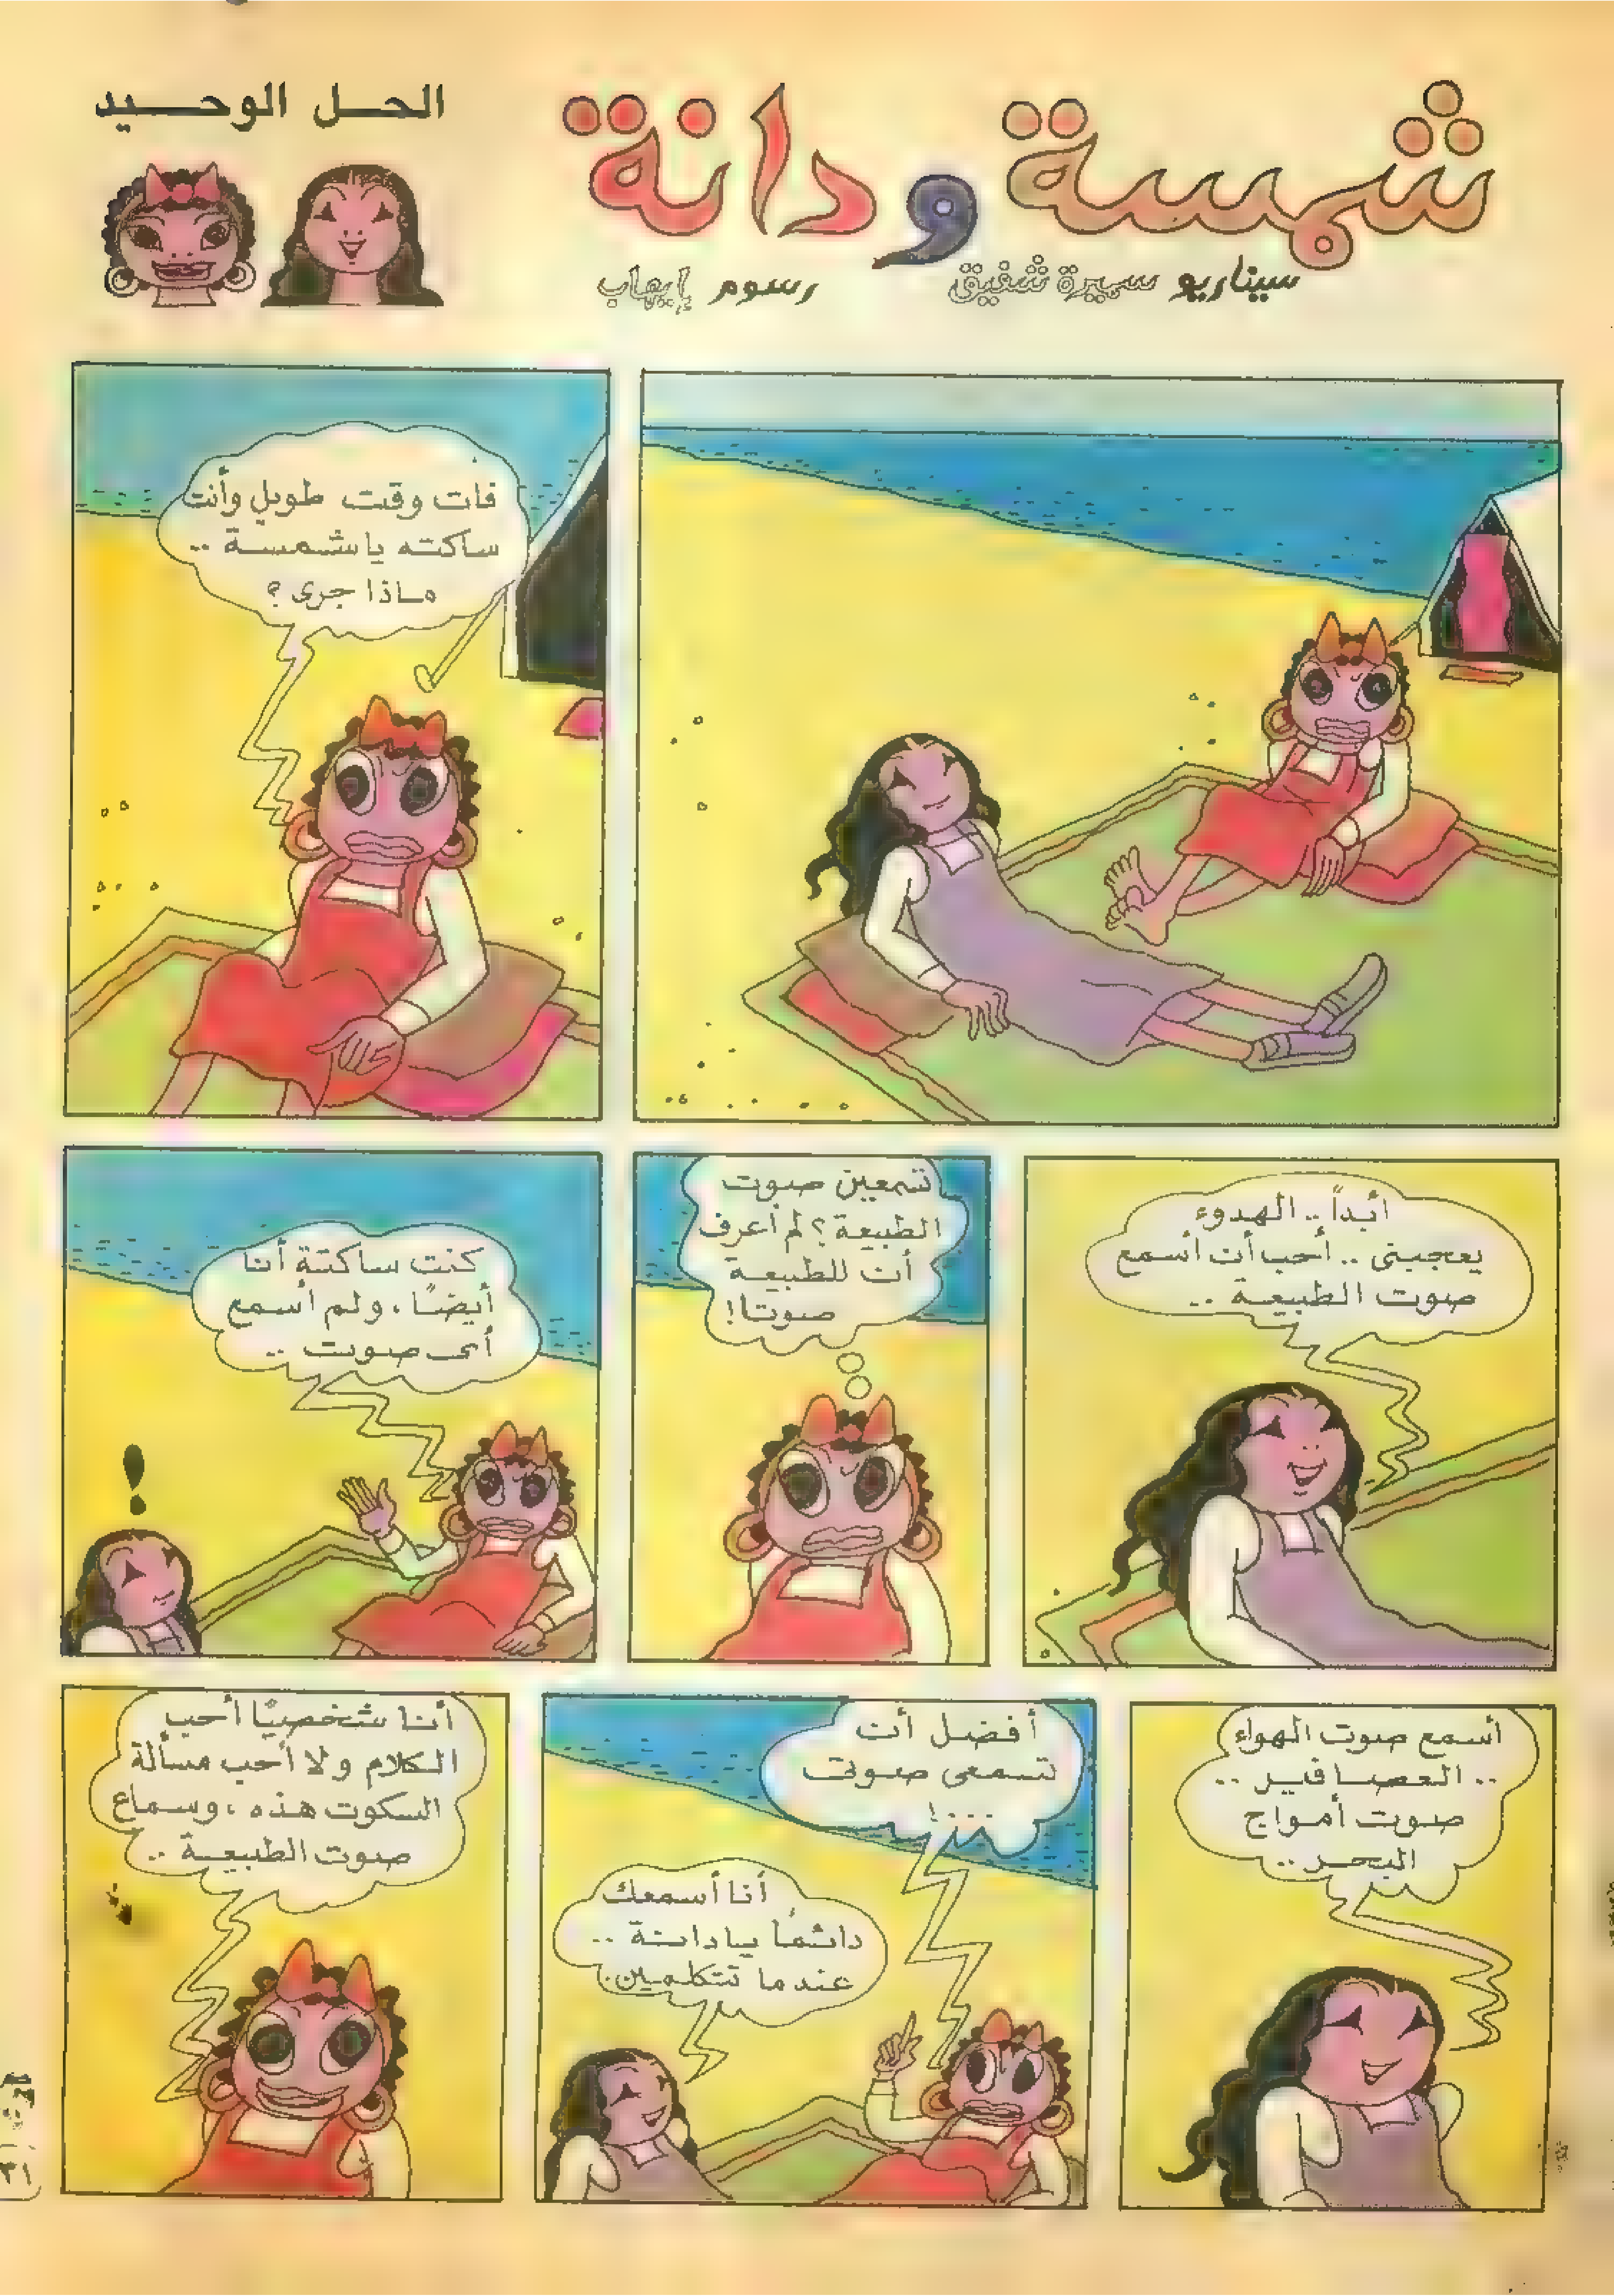 شمسة ودانة
الحل الوحيد
سيناريو سميرة شفيق
رسوم إيهاب
فات وقت طويل وأنت
ساكته ياشمسة ..
ماذا جرى ؟
أبداً .. الهدوء
يعجبنى .. أحب أن أسمع
صوت الطبيعة ..
تسمعين صوت
الطبيعة ؟ لم أعرف
أن للطبيعة
صوتا !
كنت ساكتة أنا
أيضًا ، ولم أسمع
أى صوت ..
!
أسمع صوت الهواء
.. العصافير ..
صوت أمواج
البحر ..
أفضل أن
تسمعى صوتى
...!
أنا أسمعك
دائمًا يا دانة ..
عندما تتكلمين .
أنا شخصيًا أحب
الكلام ولا أحب مسألة
السكوت هذه ، وسماع
صوت الطبيعة ..
٣١